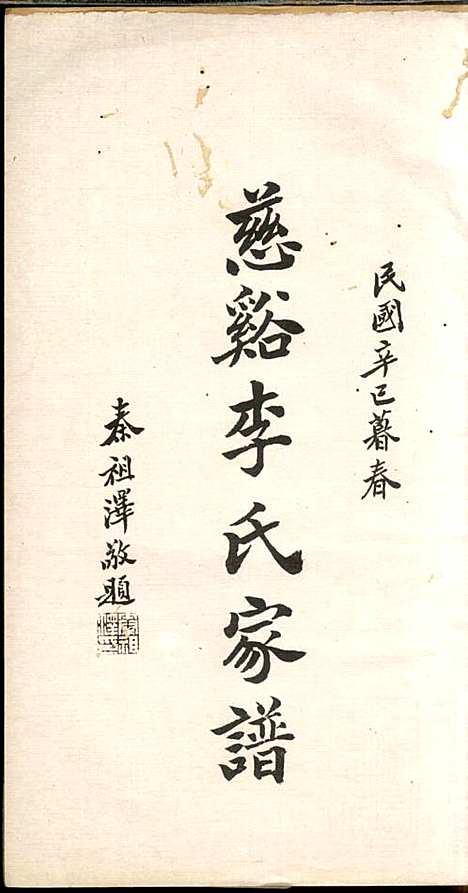 民國辛巳暮春
慈谿李氏家譜
秦祖澤敬題